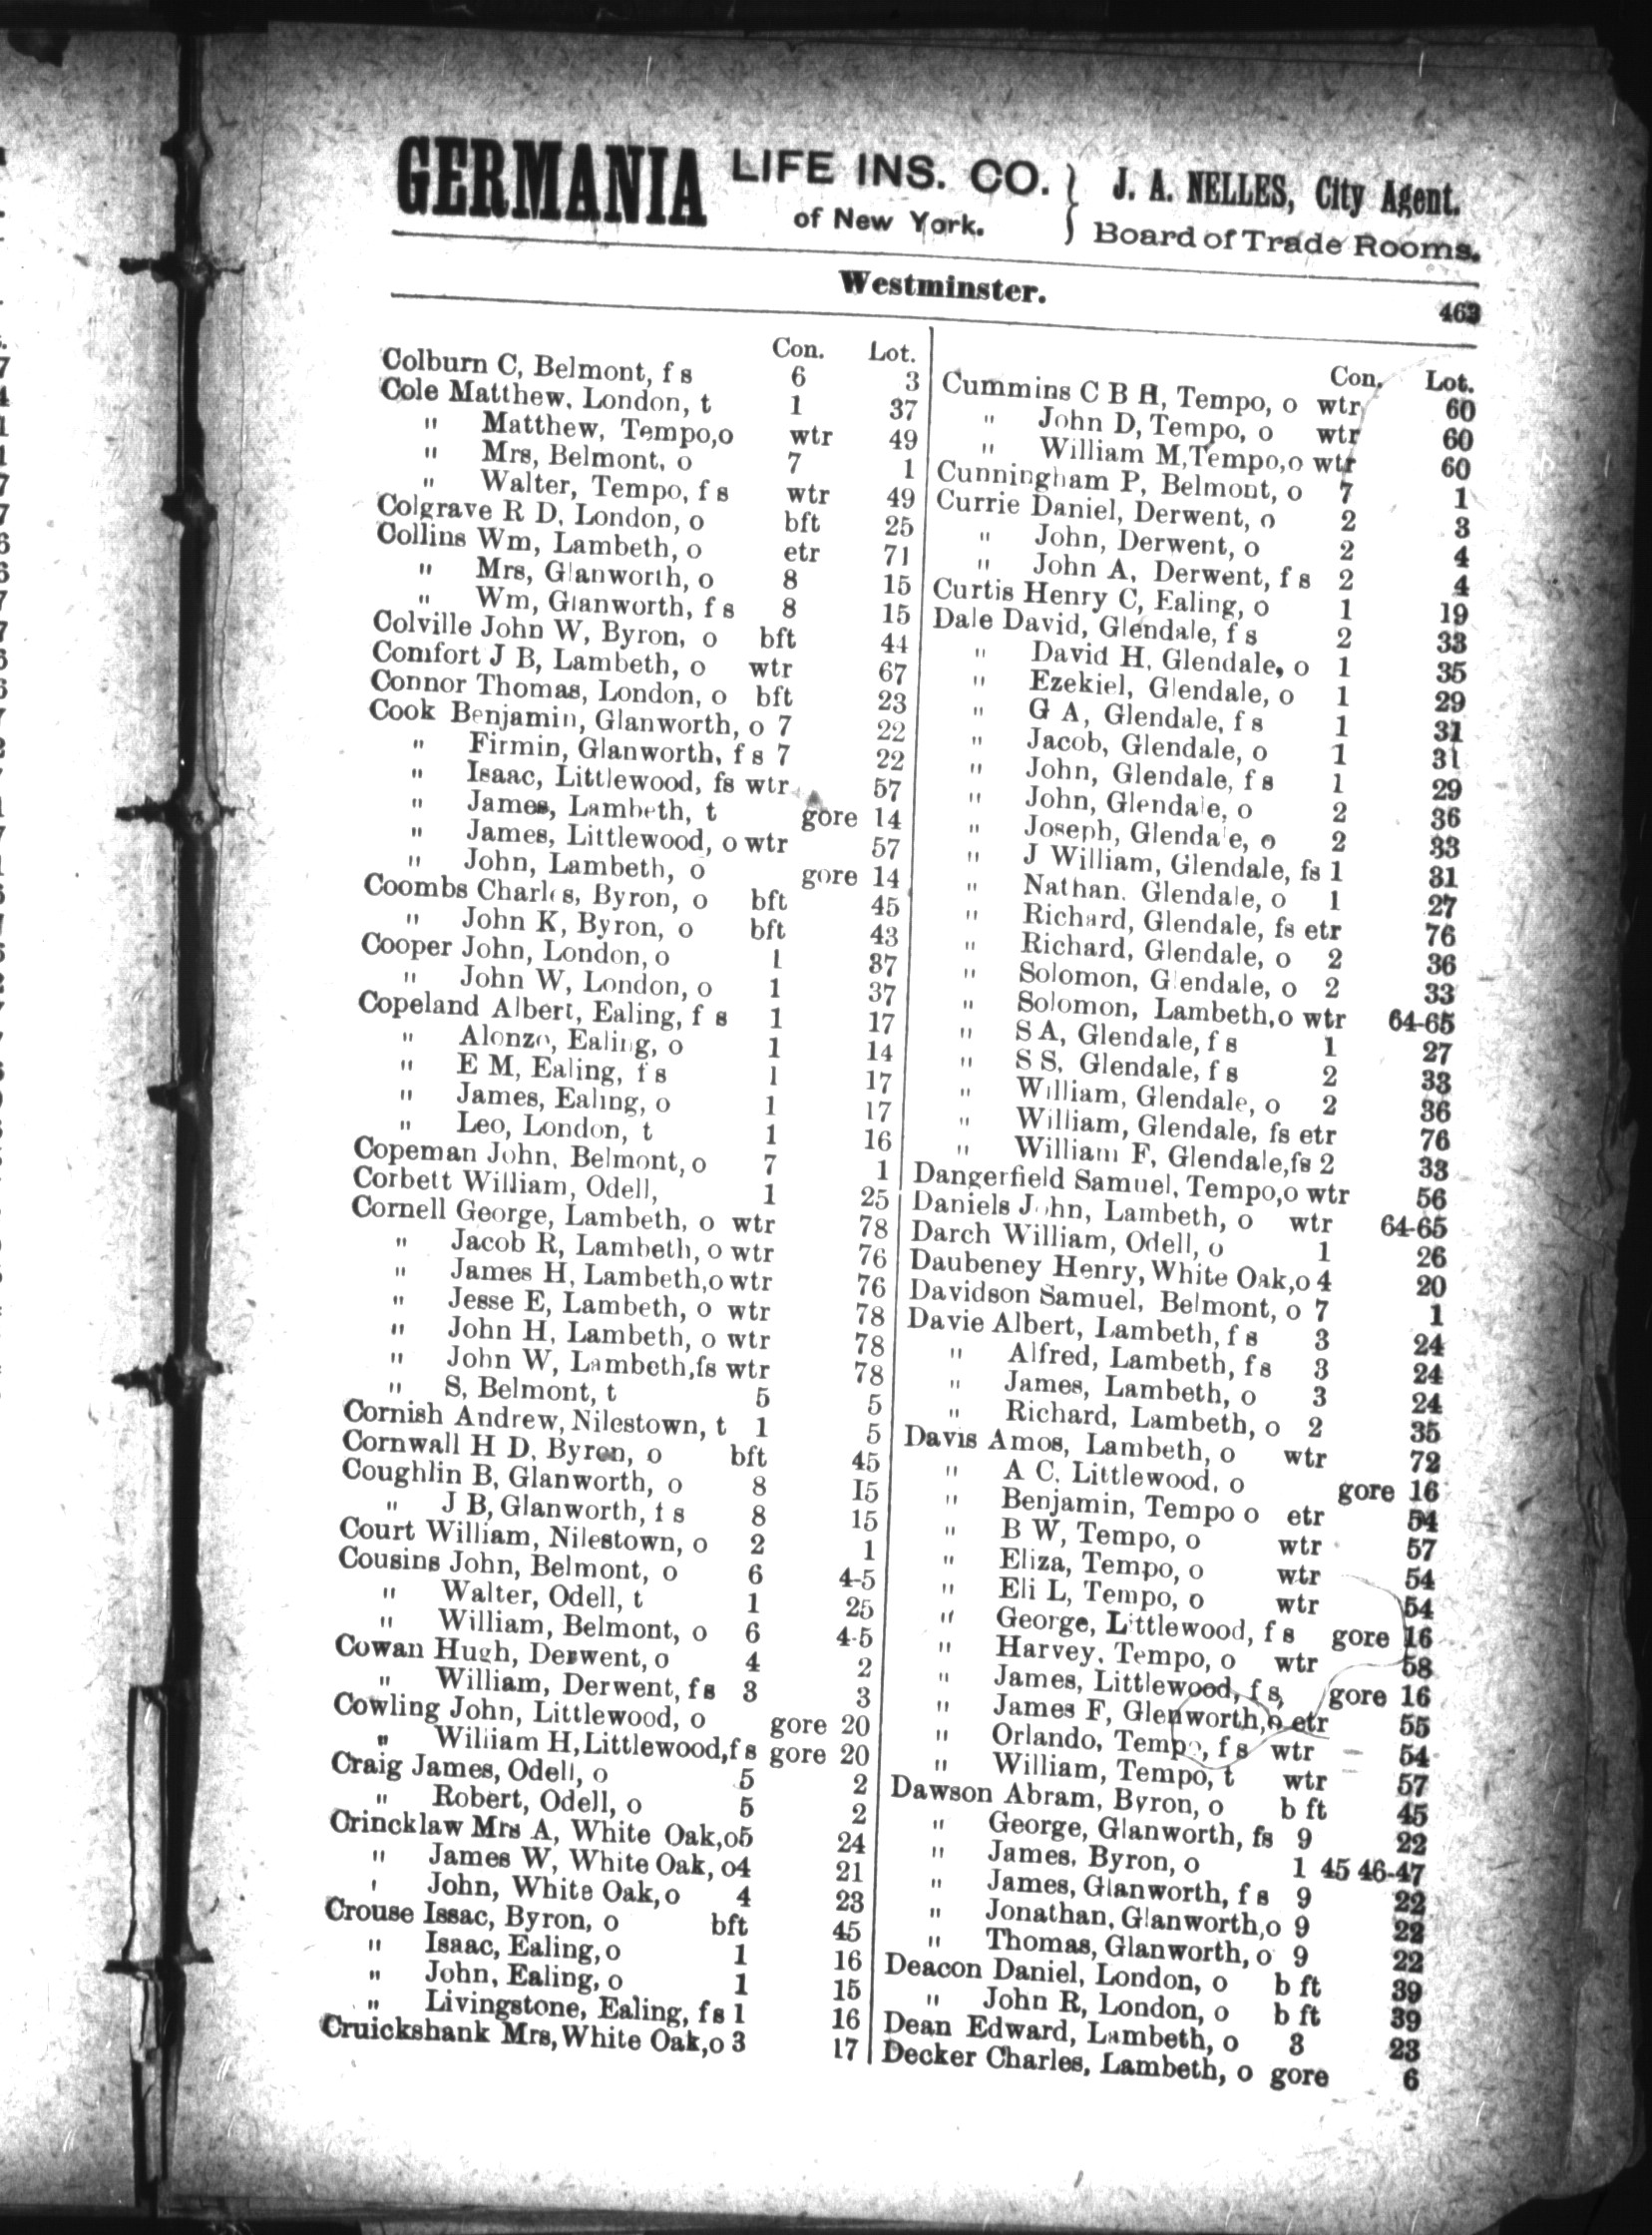 GERMANIA LIFE INS. CO. of New York. } J. A. NELLES, City Agent. Board of Trade Rooms.
Westminster. 463
Con. Lot.
Colburn C, Belmont, f s 6 3
Cole Matthew, London, t 1 37
" Matthew, Tempo,o wtr 49
" Mrs, Belmont, o 7 1
" Walter, Tempo, f s wtr 49
Colgrave R D, London, o bft 25
Collins Wm, Lambeth, o etr 71
" Mrs, Glanworth, o 8 15
" Wm, Glanworth, f s 8 15
Colville John W, Byron, o bft 44
Comfort J B, Lambeth, o wtr 67
Connor Thomas, London, o bft 23
Cook Benjamin, Glanworth, o 7 22
" Firmin, Glanworth, f s 7 22
" Isaac, Littlewood, fs wtr 57
" James, Lambeth, t gore 14
" James, Littlewood, o wtr 57
" John, Lambeth, o gore 14
Coombs Charles, Byron, o bft 45
" John K, Byron, o bft 43
Cooper John, London, o 1 37
" John W, London, o 1 37
Copeland Albert, Ealing, f s 1 17
" Alonzo, Ealing, o 1 14
" E M, Ealing, f s 1 17
" James, Ealing, o 1 17
" Leo, London, t 1 16
Copeman John, Belmont, o 7 1
Corbett William, Odell, 1 25
Cornell George, Lambeth, o wtr 78
" Jacob R, Lambeth, o wtr 76
" James H, Lambeth,o wtr 76
" Jesse E, Lambeth, o wtr 78
" John H, Lambeth, o wtr 78
" John W, Lambeth,fs wtr 78
" S, Belmont, t 5 5
Cornish Andrew, Nilestown, t 1 5
Cornwall H D, Byron, o bft 45
Coughlin B, Glanworth, o 8 15
" J B, Glanworth, f s 8 15
Court William, Nilestown, o 2 1
Cousins John, Belmont, o 6 4-5
" Walter, Odell, t 1 25
" William, Belmont, o 6 4-5
Cowan Hugh, Derwent, o 4 2
" William, Derwent, f s 3 3
Cowling John, Littlewood, o gore 20
" William H, Littlewood,f s gore 20
Craig James, Odell, o 5 2
" Robert, Odell, o 5 2
Crincklaw Mrs A, White Oak,o5 24
" James W, White Oak, o4 21
' John, White Oak, o 4 23
Crouse Issac, Byron, o bft 45
" Isaac, Ealing, o 1 16
" John, Ealing, o 1 15
" Livingstone, Ealing, f s 1 16
Cruickshank Mrs, White Oak,o 3 17
Con. Lot.
Cummins C B H, Tempo, o wtr 60
" John D, Tempo, o wtr 60
" William M,Tempo,o wtr 60
Cunningham P, Belmont, o 7 1
Currie Daniel, Derwent, o 2 3
" John, Derwent, o 2 4
" John A, Derwent, f s 2 4
Curtis Henry C, Ealing, o 1 19
Dale David, Glendale, f s 2 33
" David H, Glendale, o 1 35
" Ezekiel, Glendale, o 1 29
" G A, Glendale, f s 1 31
" Jacob, Glendale, o 1 31
" John, Glendale, f s 1 29
" John, Glendale, o 2 36
" Joseph, Glendale, o 2 33
" J William, Glendale, fs 1 31
" Nathan, Glendale, o 1 27
" Richard, Glendale, fs etr 76
" Richard, Glendale, o 2 36
" Solomon, Glendale, o 2 33
" Solomon, Lambeth,o wtr 64-65
" S A, Glendale, f s 1 27
" S S, Glendale, f s 2 33
" William, Glendale, o 2 36
" William, Glendale, fs etr 76
" William F, Glendale,fs 2 33
Dangerfield Samuel, Tempo,o wtr 56
Daniels John, Lambeth, o wtr 64-65
Darch William, Odell, o 1 26
Daubeney Henry, White Oak,o 4 20
Davidson Samuel, Belmont, o 7 1
Davie Albert, Lambeth, f s 3 24
" Alfred, Lambeth, f s 3 24
" James, Lambeth, o 3 24
" Richard, Lambeth, o 2 35
Davis Amos, Lambeth, o wtr 72
" A C, Littlewood, o gore 16
" Benjamin, Tempo o etr 54
" B W, Tempo, o wtr 57
" Eliza, Tempo, o wtr 54
" Eli L, Tempo, o wtr 54
" George, Littlewood, f s gore 16
" Harvey, Tempo, o wtr 58
" James, Littlewood, f s, gore 16
" James F, Glenworth,o etr 55
" Orlando, Tempo, f s wtr 54
" William, Tempo, t wtr 57
Dawson Abram, Byron, o b ft 45
" George, Glanworth, fs 9 22
" James, Byron, o 1 45 46-47
" James, Glanworth, f s 9 22
" Jonathan, Glanworth,o 9 22
" Thomas, Glanworth, o 9 22
Deacon Daniel, London, o b ft 39
" John R, London, o b ft 39
Dean Edward, Lambeth, o 3 23
Decker Charles, Lambeth, o gore 6